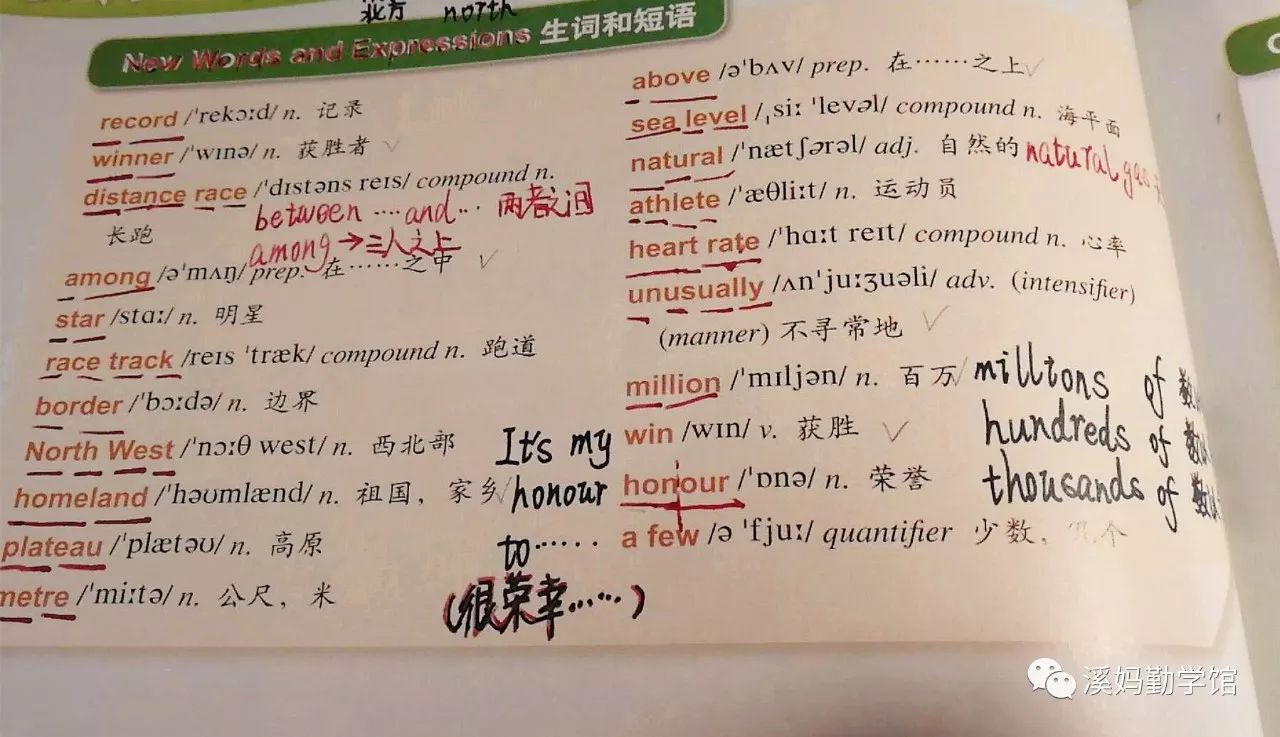 北方 north
New Words and Expressions 生词和短语
record /ˈrekɔːd/ n. 记录
winner /ˈwɪnə/ n. 获胜者
distance race /ˈdɪstəns reɪs/ compound n.
长跑
between ···· and ··· 两者之间
among → 三人之上
among /əˈmʌŋ/ prep. 在……之中
star /stɑː/ n. 明星
race track /reɪs ˈtræk/ compound n. 跑道
border /ˈbɔːdə/ n. 边界
North West /ˈnɔːθ west/ n. 西北部
homeland /ˈhəʊmlænd/ n. 祖国，家乡
plateau /ˈplætəʊ/ n. 高原
metre /ˈmiːtə/ n. 公尺，米
It's my
honour
to ······
(很荣幸……)
above /əˈbʌv/ prep. 在……之上
sea level /ˌsiː ˈlevəl/ compound n. 海平面
natural /ˈnætʃərəl/ adj. 自然的 natural gas
athlete /ˈæθliːt/ n. 运动员
heart rate /ˈhɑːt reɪt/ compound n. 心率
unusually /ʌnˈjuːʒuəli/ adv. (intensifier)
(manner) 不寻常地
million /ˈmɪljən/ n. 百万 milltons of 数
win /wɪn/ v. 获胜 hundreds of 数
honour /ˈɒnə/ n. 荣誉 thousands of 数以
a few /ə ˈfjuː/ quantifier 少数，几个
溪妈勤学馆